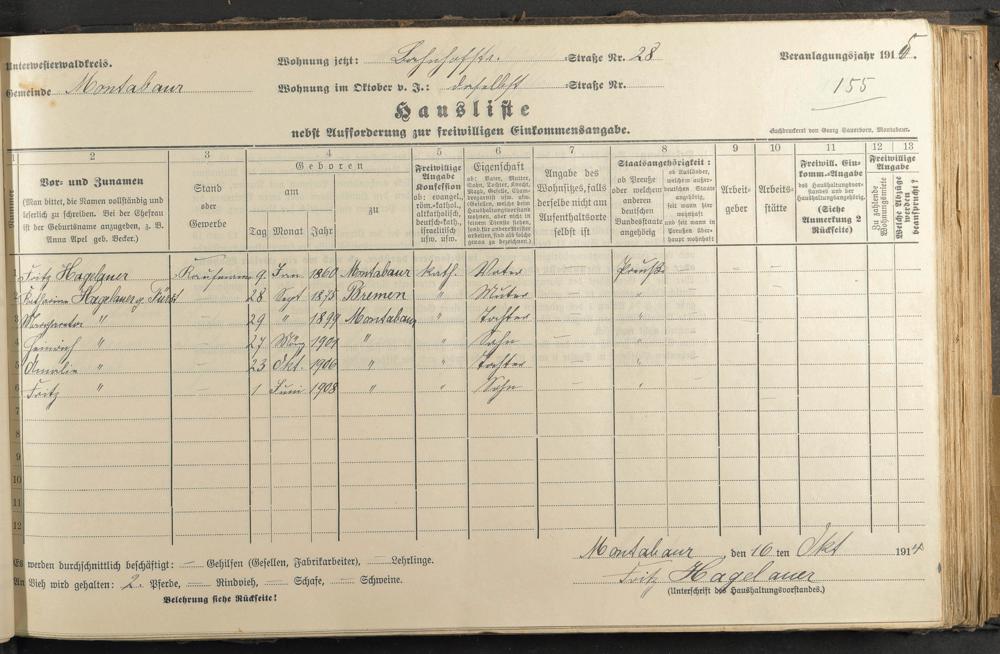 Unterwesterwaldkreis.
Wohnung jetzt: Bahnhofstr. -Straße Nr. 28
Veranlagungsjahr 1915.
Gemeinde Montabaur
Wohnung im Oktober v. J.: daselbst -Straße Nr.
155
Hausliste
nebst Aufforderung zur freiwilligen Einkommensangabe.
Buchdruckerei von Georg Sauerborn, Montabaur.
1 2 3 4 5 6 7 8 9 10 11 12 13
Nummer
Vor- und Zunamen
(Man bittet, die Namen vollständig und
leserlich zu schreiben. Bei der Ehefrau
ist der Geburtsname anzugeben, z. B.
Anna Apel geb. Becker.)
Stand
oder
Gewerbe
Geboren
am
zu
Tag Monat Jahr
Freiwillige
Angabe
Konfession
ob: evangel.,
röm.-kathol.,
altkatholisch,
deutsch-kath.,
israelitisch
usw. usw.
Eigenschaft
ob: Vater, Mutter,
Sohn, Tochter, Knecht,
Magd, Geselle, Cham-
bregarnist usw. usw.
(Gesellen, welche beim
Haushaltungsvorstand
wohnen, aber nicht in
dessen Dienste stehen,
sondern für andere Meister
arbeiten, sind als solche
genau zu bezeichnen.)
Angabe des
Wohnsitzes, falls
derselbe nicht am
Aufenthaltsorte
selbst ist
Staatsangehörigkeit:
ob Preuße
oder welchem
anderen
deutschen
Bundesstaate
angehörig
ob Ausländer,
welchem außer-
deutschen Staate
angehörig,
seit wann hier
wohnhaft
und seit wann in
Preußen über-
haupt wohnhaft
Arbeit-
geber
Arbeits-
stätte
Freiwill. Ein-
komm.-Angabe
des Haushaltungsvor-
standes und der
Haushaltungsangehörig.
(Siehe
Anmerkung 2
Rückseite)
Freiwillige
Angabe
Zu zahlende
Wohnungsmiete
Welche Abzüge
werden
beansprucht?
1 Fritz Hagelauer Kaufmann 9 Jan 1860 Montabaur kath. Vater Preuße
2 Katharina Hagelauer g. Fürst — 28 Sept 1875 Bremen " Mutter — "
3 Margareta " — 29 " 1899 Montabaur " Tochter — "
4 Heinrich " — 27 März 1901 " " Sohn — "
5 Amalie " — 23 Okt. 1906 " " Tochter — "
6 Fritz " — 1 Juni 1908 " " Sohn — "
7
8
9
10
11
12
Es werden durchschnittlich beschäftigt: — Gehilfen (Gesellen, Fabrikarbeiter), — Lehrlinge.
An Vieh wird gehalten: 2 Pferde, — Rindvieh, — Schafe, — Schweine.
Belehrung siehe Rückseite!
Montabaur, den 16 ten Okt 1914
Fritz Hagelauer
(Unterschrift des Haushaltungsvorstandes.)